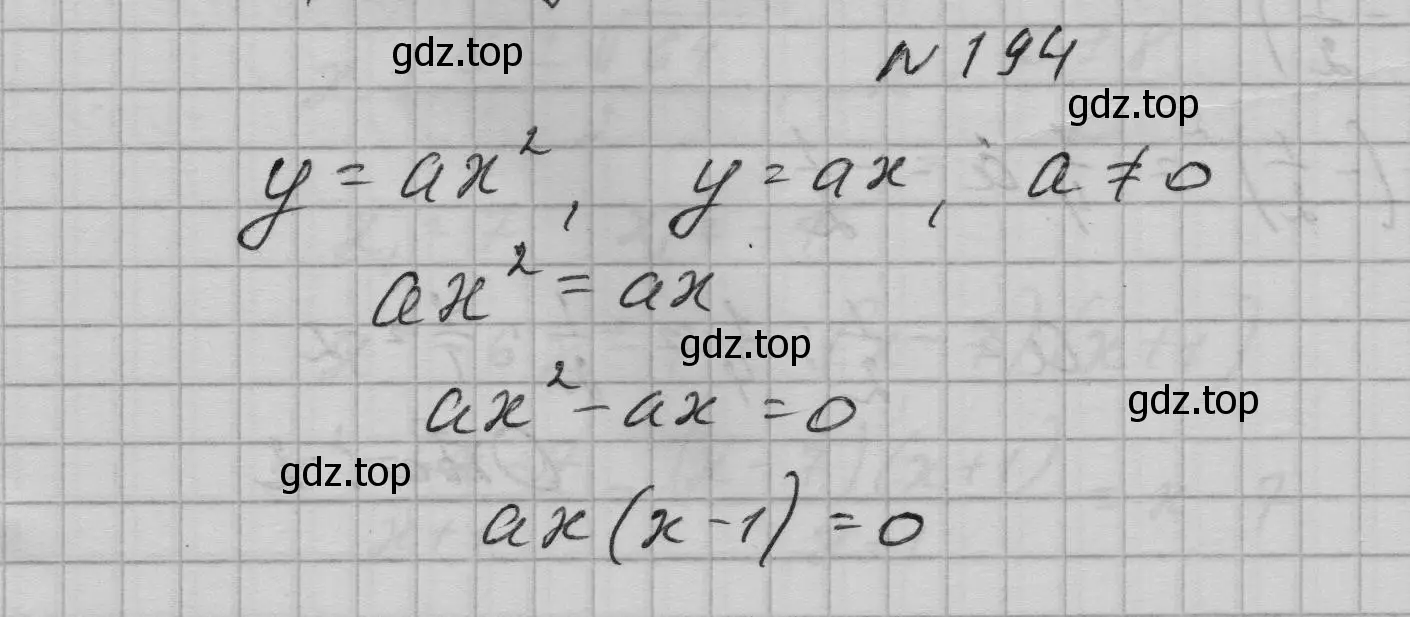 gdz.top
N 194
gdz.top
y = ax², y = ax, a ≠ 0
ax² = ax
gdz.top
ax² - ax = 0
gdz.top
gdz.top
ax(x-1) = 0